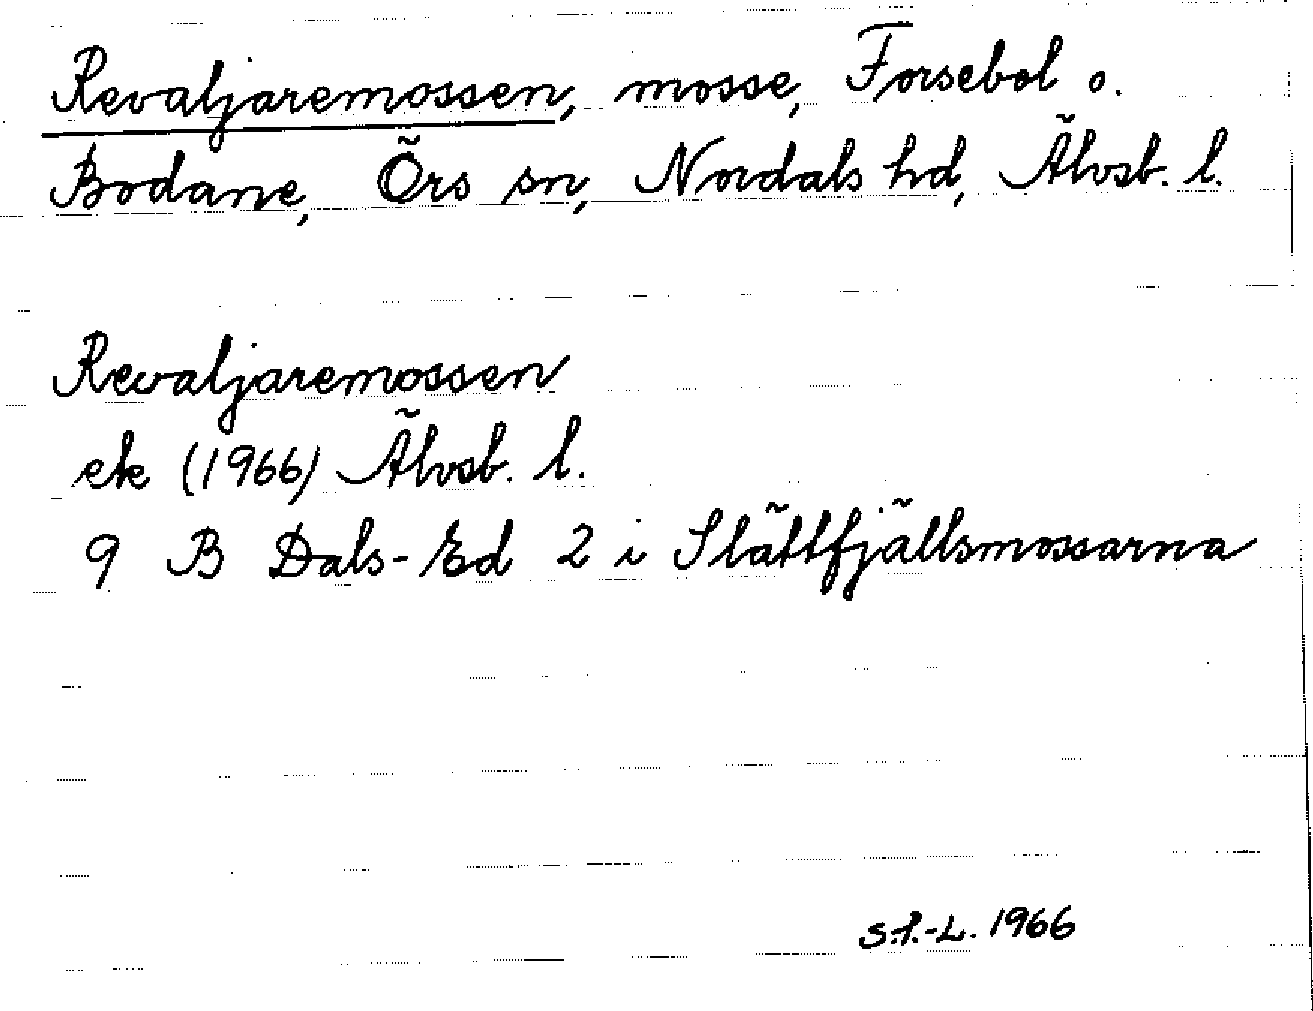 Revaljaremossen, mosse, Forsebol o.
Bodane, Örs sn, Nordals hd, Älvsb. l.
Revaljaremossen
ek (1966) Älvsb. l.
9 B Dals-Ed 2 i Slättfjällsmossarna
S.P.-L. 1966